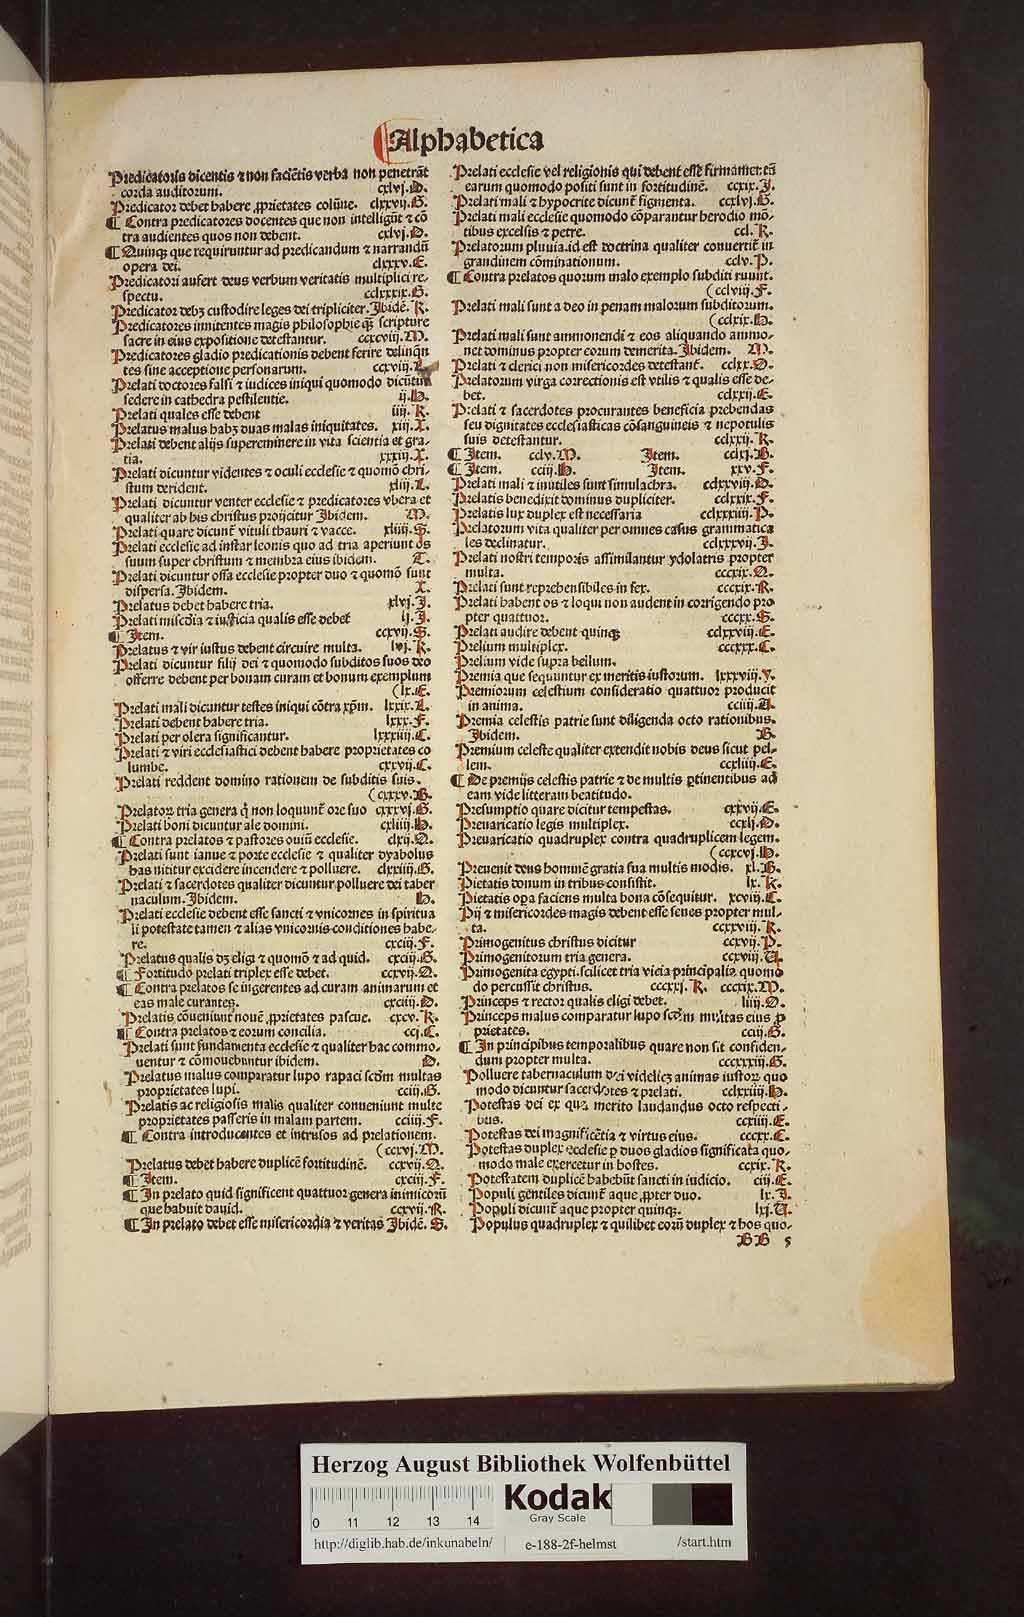 Alphabetica
Predicatoris dicentis ⁊ non faciētis verba non penetrāt
corda auditorum. cxlvj.D.
Predicator debet habere ꝓprietates colūne. clxxvij.G.
¶ Contra predicatores docentes que non intelligūt ⁊ cō
tra audientes quos non debent. cxlvj.O.
¶ Quinqꝫ que requiruntur ad predicandum ⁊ narrandū
opera dei. clxxxv.E.
Predicatori aufert deus verbum veritatis multiplici re-
spectu. cclxxxix.G.
Predicator debꝫ custodire leges dei tripliciter. Ibidē. K.
Predicatores innitentes magis philosophie qꝫ scripture
sacre in eius expositione detestantur. ccxcviij.M.
Predicatores gladio predicationis debent ferire delinqū
tes sine acceptione personarum. ccxviij.
Prelati doctores falsi ⁊ iudices iniqui quomodo dicūtur
sedere in cathedra pestilentie. ij.H.
Prelati quales esse debent iiij. K.
Prelatus malus habꝫ duas malas iniquitates. xiij.X.
Prelati debent alijs supereminere in vita scientia et gra-
tia. xxxiij.X.
Prelati dicuntur videntes ⁊ oculi ecclesie ⁊ quomō chri-
stum derident. xliij.L.
Prelati dicuntur venter ecclesie ⁊ predicatores vbera et
qualiter ab his christus proijcitur Ibidem. M.
Prelati quare dicunt̄ vituli thauri ⁊ vacce. xliiij.S.
Prelati ecclesie ad instar leonis quo ad tria aperiunt os
suum super christum ⁊ membra eius ibidem. T.
Prelati dicuntur ossa ecclesie propter duo ⁊ quomō sunt
dispersa. Ibidem. X.
Prelatus debet habere tria. xlvj.I.
Prelati miscdia ⁊ iusticia qualis esse debet lj.I.
¶ Item. ccxvij.S.
Prelatus ⁊ vir iustus debent circuire multa. lvj.K.
Prelati dicuntur filij dei ⁊ quomodo subditos suos deo
offerre debent per bonam curam et bonum exemplum
(lx.E.
Prelati mali dicuntur testes iniqui cōtra xp̄m. lxxix.L.
Prelati debent habere tria. lxxx.F.
Prelati per olera significantur. lxxxiiij.C.
Prelati ⁊ viri ecclesiastici debent habere proprietates co
lumbe. cxxvij.C.
Prelati reddent domino rationem de subditis suis.
(cxxxv.B.
Prelatoꝝ tria genera q̄ non loquunt̄ ore suo cxxxvj.G.
Prelati boni dicuntur ale domini. cxliiij.H.
¶ Contra prelatos ⁊ pastores ouiū ecclesie. clxij.Q.
Prelati sunt ianue ⁊ porte ecclesie ⁊ qualiter dyabolus
has nititur excidere incendere ⁊ polluere. clxxiiij.G.
Prelati ⁊ sacerdotes qualiter dicuntur polluere dei taber
naculum. Ibidem. H.
Prelati ecclesie debent esse sancti ⁊ vnicornes in spiritua
li potestate tamen ⁊ alias vnicornis conditiones habe-
re. cxciij.F.
Prelatus qualis dꝫ eligi ⁊ quomō ⁊ ad quid. cxciij.G.
¶ Fortitudo prelati triplex esse debet. ccxvij.Q.
¶ Contra prelatos se ingerentes ad curam animarum et
eas male curantes. cxciiij.O.
Prelatis cōueniunt nouē ꝓprietates pascue. cxcv.K.
¶ Contra prelatos ⁊ eorum concilia. ccj.C.
Prelati sunt fundamenta ecclesie ⁊ qualiter hac commo-
uentur ⁊ cōmouebuntur ibidem. D.
Prelatus malus comparatur lupo rapaci scdm multas
proprietates lupi. cciij.G.
Prelatis ac religiosis malis qualiter conueniunt multe
proprietates passeris in malam partem. cciiij.F.
¶ Contra introducentes et intrusos ad prelationem.
(ccxvj.M.
Prelatus debet habere duplicē fortitudinē. ccxvij.Q.
¶ Item. cxciij.F.
¶ In prelato quid significent quattuor genera inimicorū
que habuit dauid. ccxvij.R.
¶ In prelato debet esse misericordia ⁊ veritas Ibidē. S.
Prelati ecclesie vel religionis qui debent esse firmamentū
earum quomodo positi sunt in fortitudinē. ccxix.I.
Prelati mali ⁊ hypocrite dicunt̄ figmenta. ccxlvj.G.
Prelati mali ecclesie quomodo cōparantur herodio mō-
tibus excelsis ⁊ petre. ccl.K.
Prelatorum pluuia.id est doctrina qualiter conuertit̄ in
grandinem cōminationum. cclv.P.
¶ Contra prelatos quorum malo exemplo subditi ruunt.
(cclviij.F.
Prelati mali sunt a deo in penam malorum subditorum.
(cclxix.H.
Prelati mali sunt ammonendi ⁊ eos aliquando ammo-
net dominus propter eorum demerita. Ibidem. M.
Prelati ⁊ clerici non misericordes detestant̄. cclxx.O.
Prelatorum virga correctionis est vtilis ⁊ qualis esse de-
bet. cclxxij.E.
Prelati ⁊ sacerdotes procurantes beneficia prebendas
seu dignitates ecclesiasticas cōsanguineis ⁊ nepotulis
suis detestantur. cclxxij.K.
¶ Item. cclv.M. Item. cclxj.B.
¶ Item. cciij.H. Item. xxv.F.
Prelati mali ⁊ inutiles sunt simulachra. cclxxviij.O.
Prelatis benedixit dominus dupliciter. cclxxix.F.
Prelatis lux duplex est necessaria cclxxxiiij.P.
Prelatorum vita qualiter per omnes casus grammatica
les declinatur. cclxxxvij.I.
Prelati nostri temporis assimilantur ydolatris propter
multa. cccxix.Q.
Prelati sunt reprehensibiles in sex. cccxix.R.
Prelati habent os ⁊ loqui non audent in corrigendo pro
pter quattuor. cccxx.S.
Prelati audire debent quinqꝫ cclxxviij.E.
Prelium multiplex. cccxxx.C.
Prelium vide supra bellum.
Premia que sequuntur ex meritis iustorum. lxxxviij.V.
Premiorum celestium consideratio quattuor producit
in anima. cciiij.A.
Premia celestis patrie sunt diligenda octo rationibus.
Ibidem. B.
Premium celeste qualiter extendit nobis deus sicut pel-
lem. ccxliij.E.
¶ De premijs celestis patrie ⁊ de multis ꝑtinentibus ad
eam vide litteram beatitudo.
Presumptio quare dicitur tempestas. cxxvij.E.
Preuaricatio legis multiplex. ccxlj.O.
Preuaricatio quadruplex contra quadruplicem legem.
(ccxcvj.H.
Preuenit deus hominē gratia sua multis modis. xl.B.
Pietatis donum in tribus consistit. lx.K.
Pietatis oꝑa faciens multa bona cōsequitur. xcviij.C.
Pij ⁊ misericordes magis debent esse senes propter mul-
ta. ccxxviij.K.
Primogenitus christus dicitur ccxxvij.P.
Primogenitorum tria genera. ccxxviij.A.
Primogenita egypti.scilicet tria vicia principalia quomo
do percussit christus. ccccxxj.K. cccxix.M.
Princeps ⁊ rector qualis eligi debet. liiij.O.
Princeps malus comparatur lupo scdm multas eius ꝓ
prietates. cciij.G.
¶ In principibus temporalibus quare non sit confiden-
dum propter multa. cccxxxiij.G.
Polluere tabernaculum dei videlicꝫ animas iustoꝝ quo
modo dicuntur sacerdotes ⁊ prelati. cclxxiiij.H.
Potestas dei ex qua merito laudandus octo respecti-
bus. ccxiiij.E.
Potestas dei magnificētia ⁊ virtus eius. cccxx.C.
Potestas duplex ecclesie ꝑ duos gladios significata quo-
modo male exercetur in hostes. ccxix.K.
Potestatem duplicē habebūt sancti in iudicio. ciij.E.
Populi gentiles dicunt̄ aque ꝓpter duo. lx.I.
Populi dicunt̄ aque propter quinqꝫ. lxj.A.
Populus quadruplex ⁊ quilibet eorū duplex ⁊ hos quo-
BB 5
Herzog August Bibliothek Wolfenbüttel
0 11 12 13 14
Kodak
Gray Scale
http://diglib.hab.de/inkunabeln/ e-188-2f-helmst /start.htm